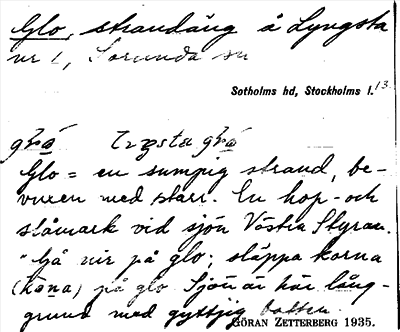 Glo, strandäng å Lyngsta
nr 1, Sorunda sn
Sotholms hd, Stockholms l. 13
Glo = en sumpig strand, be-
vuxen med starr. En hop- och
slåmark vid sjön Västra Styran.
"Gå nir på glo; släppa korna
på glo Sjön är här lång-
grund med gyttjig botten.
GÖRAN ZETTERBERG 1935.